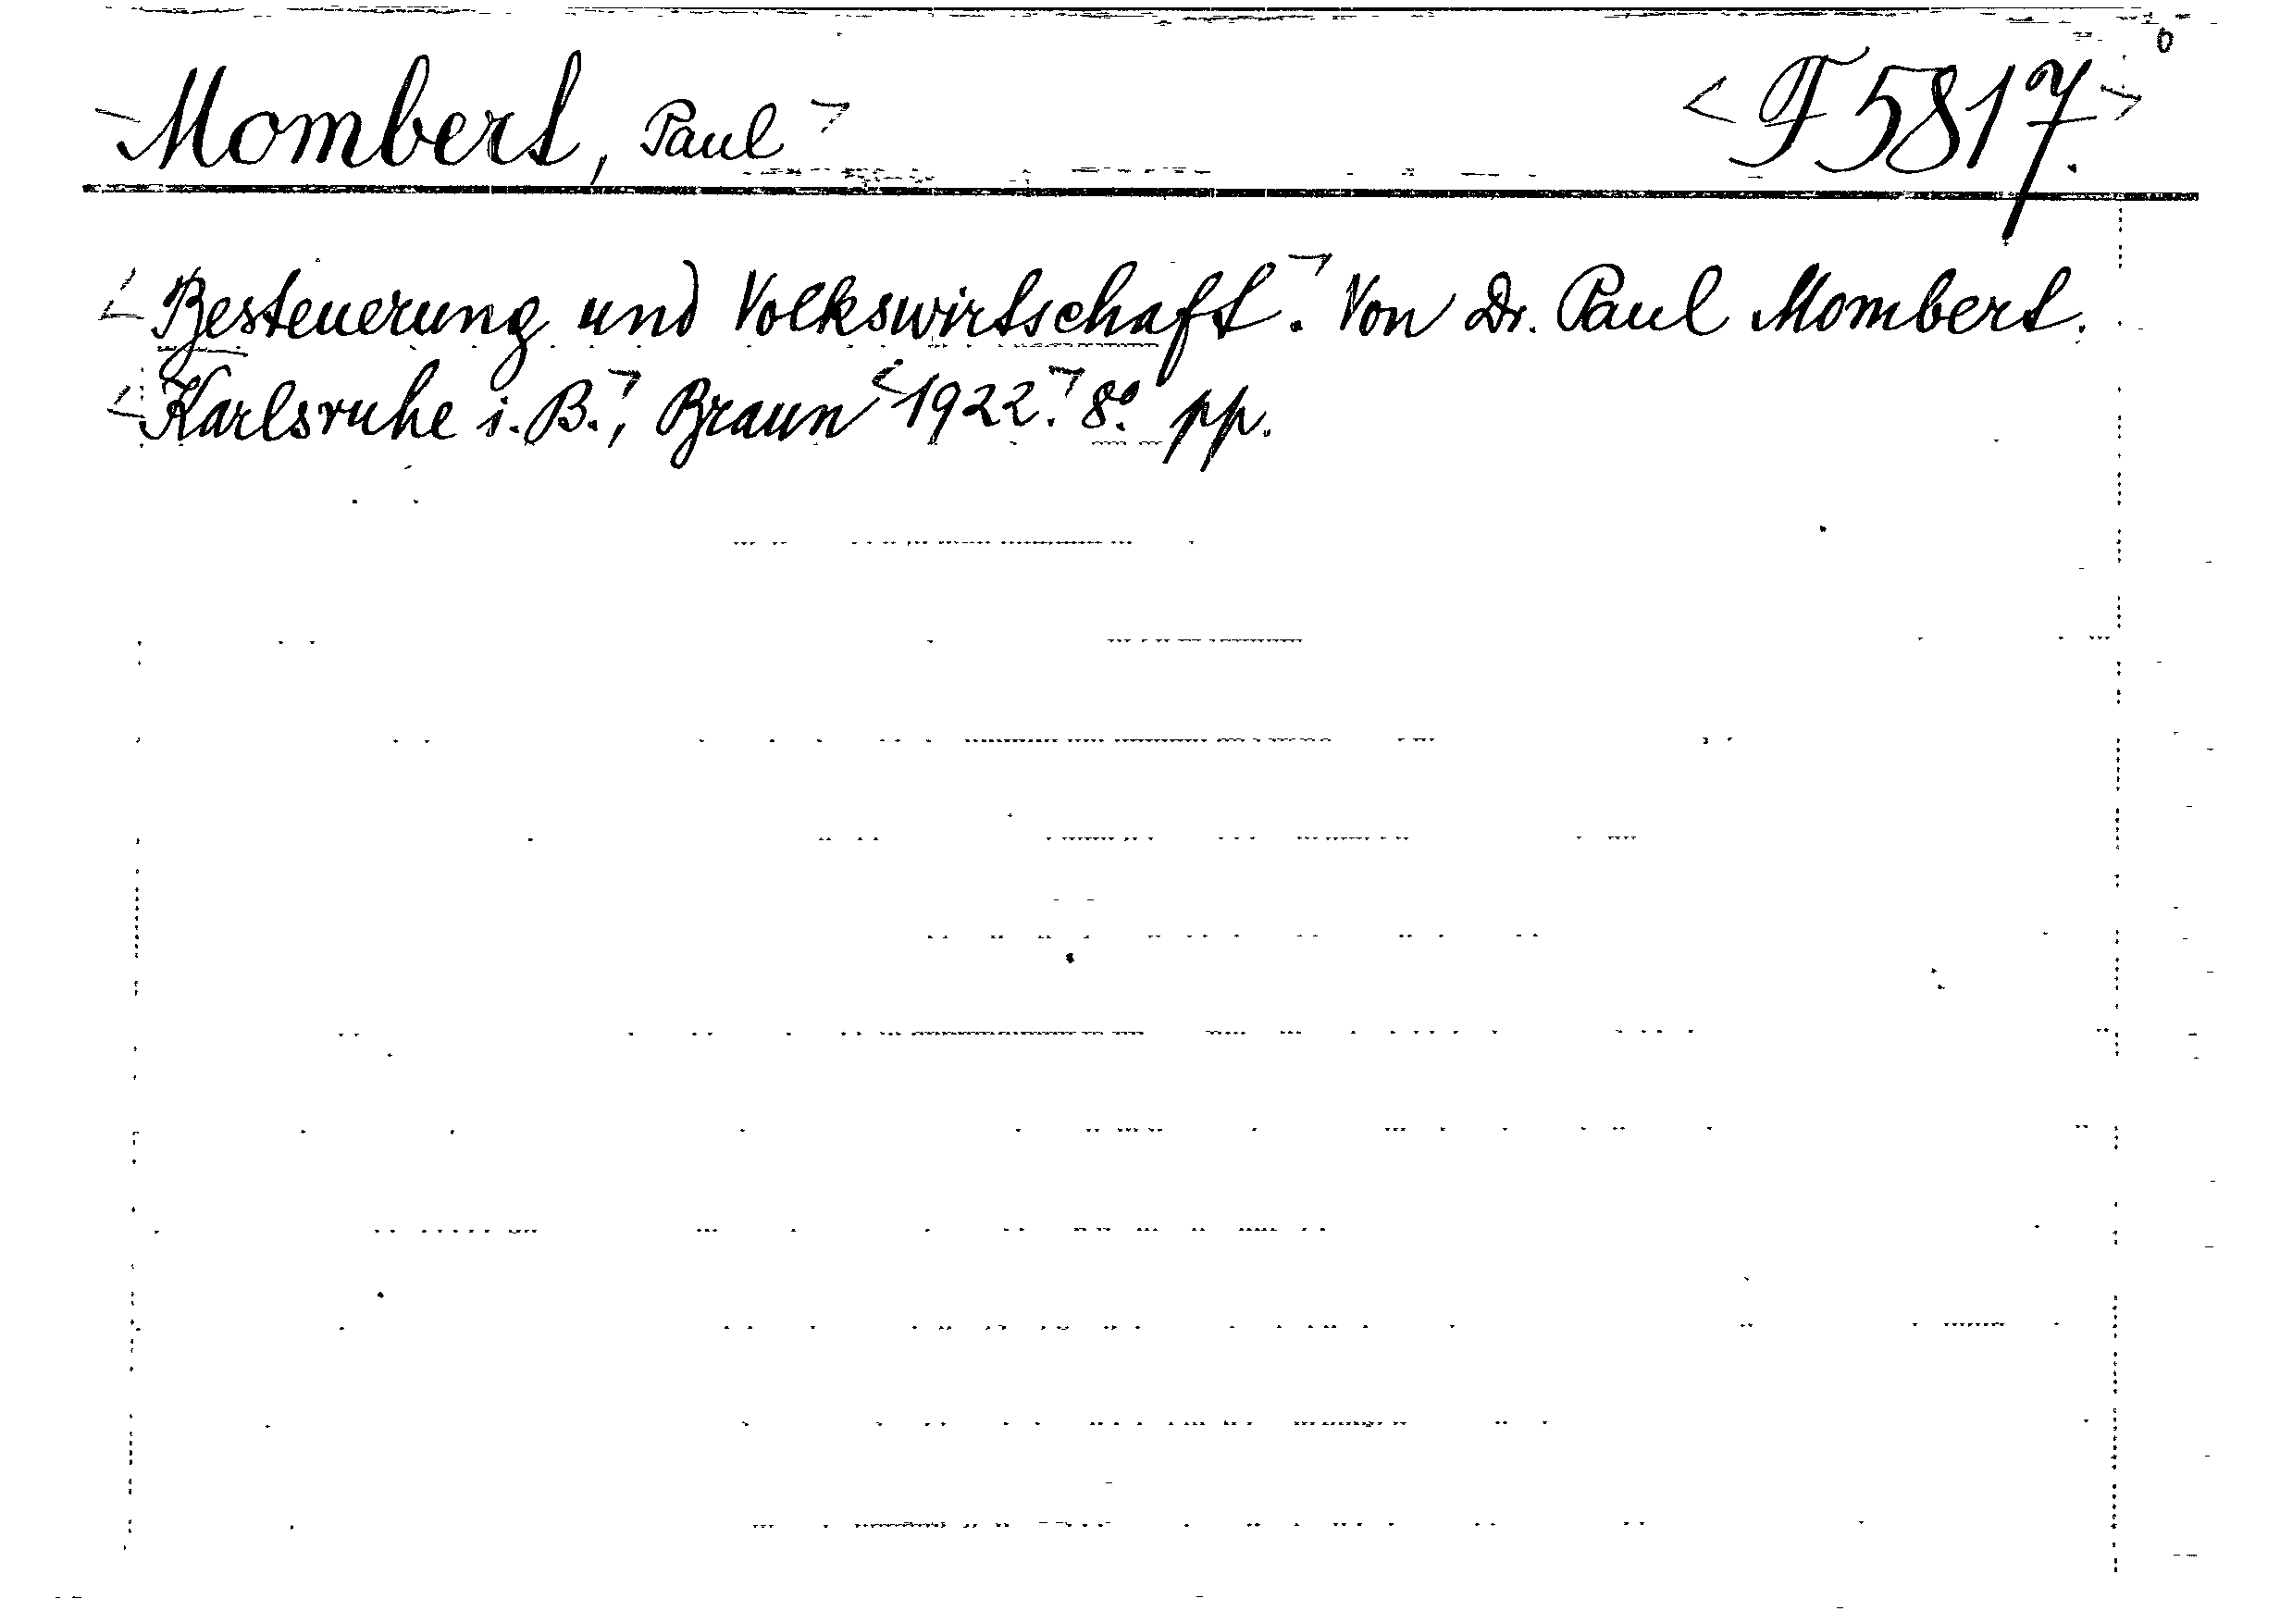 Mombert, Paul <F 5817.>
Besteuerung und Volkswirtschaft. Von Dr. Paul Mombert.
Karlsruhe i. B., Braun 1922. 8° pp.